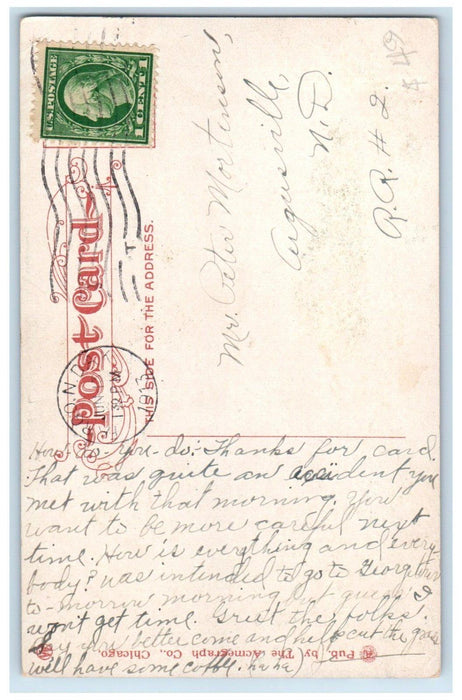 U.S. POSTAGE
1 CENT 1
Post Card
THIS SIDE FOR THE ADDRESS.
N. DAK
JUN
1 30 PM
1913
Mr. Peter Mortenson,
Argusville,
N.D.
R.R. # 2.
$ 49
How-do-you-do:- Thanks for card.
That was quite an accident you
met with that morning. You
want to be more careful next
time. How is everything and every-
body? was intended to go to
to-morrow morning but guess I
won't get time. Greet the folks.
Say you better come and help cut the grass
well have some coffy. ha ha)
Pub. by The Acmegraph Co., Chicago.